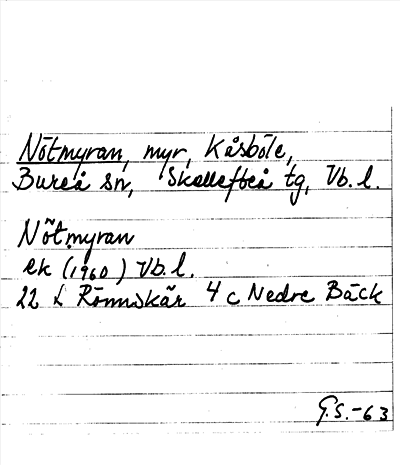 Nötmyran, myr, Kåsböle,
Bureå sn, Skellefteå tg, Vb. l.
Nötmyran
ek (1960) Vb. l.
22 L Rönnskär 4 c Nedre Bäck
G.S.-63